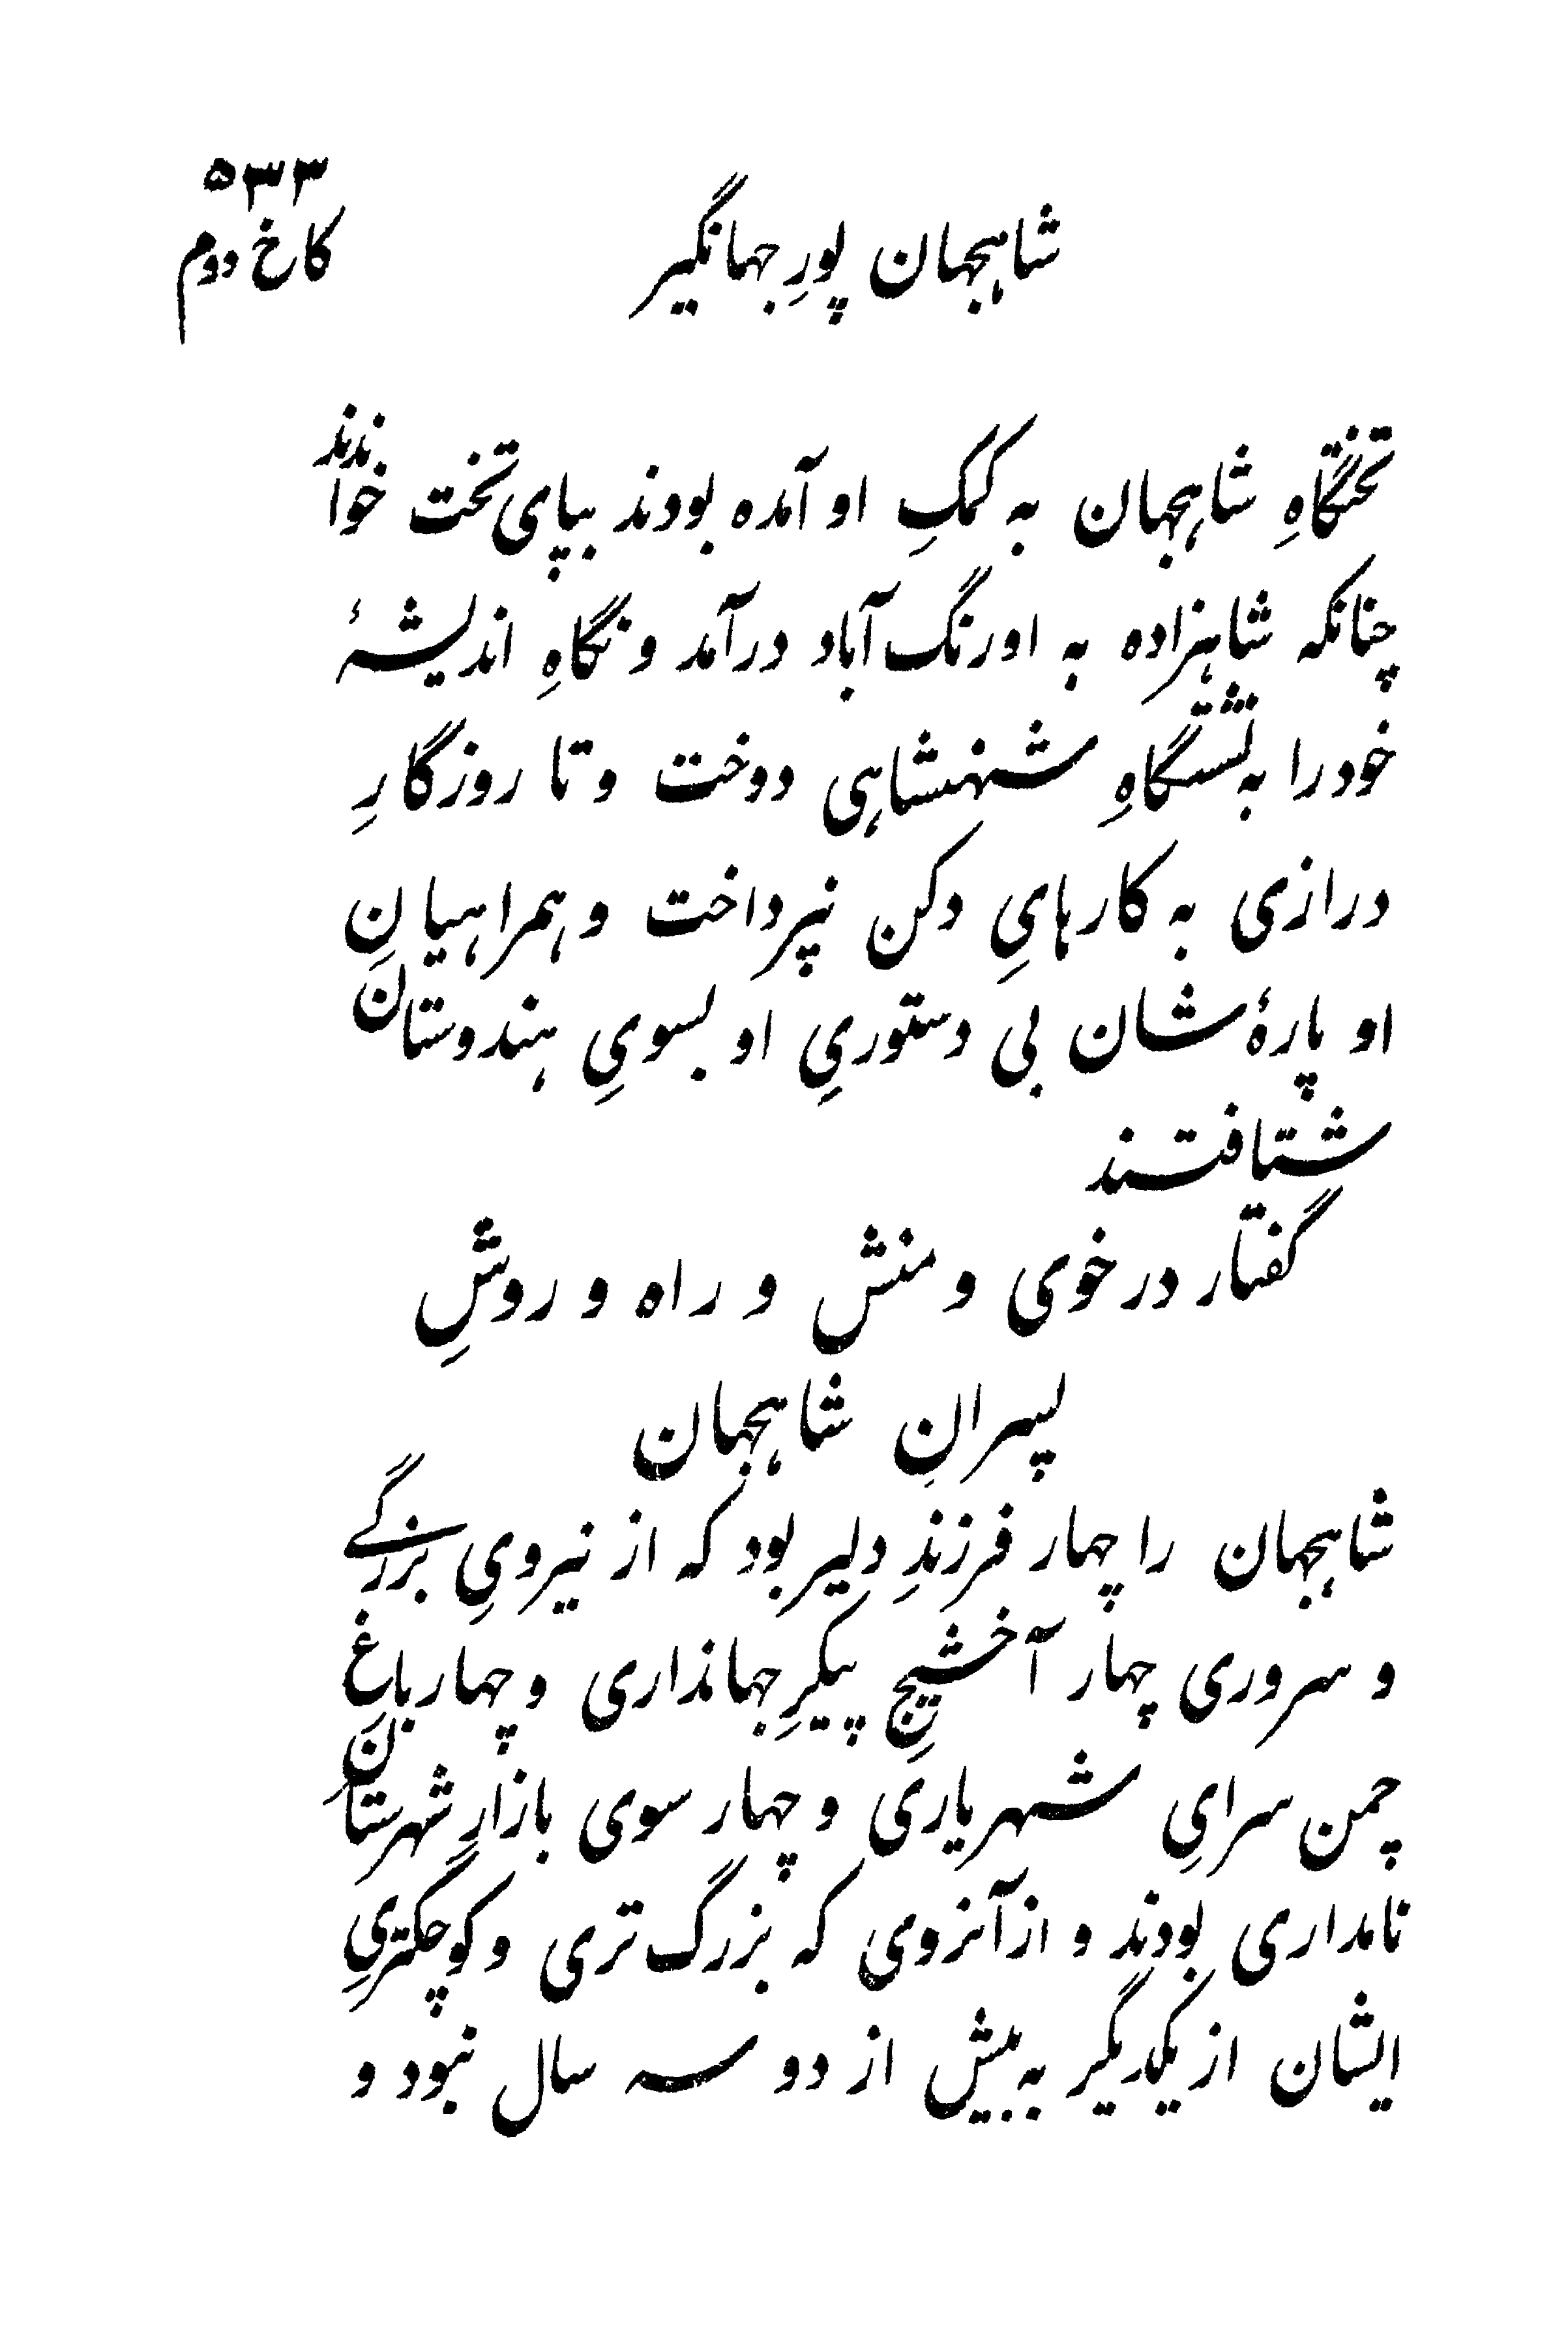 ۵۳۳
شاهجهان پورِ جهانگیر
کاخ دوم
تختگاهِ شاهجهان به کمکِ او آمده بودند بپای تخت خواندند
چنانکه شاهزاده به اورنگ آباد درآمد و نگاهِ اندیشهٔ
خود را به نشستگاهِ شهنشاهی دوخت و تا روزگارِ
درازی به کارهایِ دکن نپرداخت و همراهیانِ
او پارهٔ شان بی دستوریِ او بسویِ هندوستان
شتافتند
گفتار در خوی و منش و راه و روشِ
پسرانِ شاهجهان
شاهجهان را چهار فرزندِ دلیر بود که از نیرویِ بزرگے
و سروری چهار آخشیجِ پیکرِ جهانداری و چهار باغِ
چمن سرایِ شهریاری و چهار سوی بازارِ شهرستانِ
نامداری بودند و از آنروی که بزرگ تری و کوچکتریِ
ایشان از یکدیگر به بیش از دو سه سال نبود و